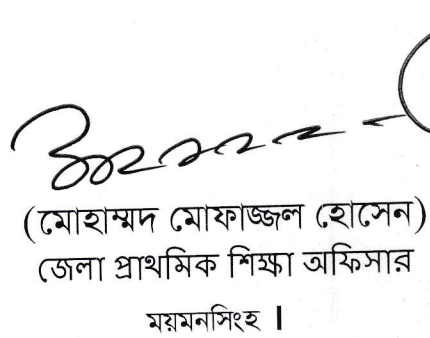 (মোহাম্মদ মোফাজ্জল হোসেন)
জেলা প্রাথমিক শিক্ষা অফিসার
ময়মনসিংহ ।